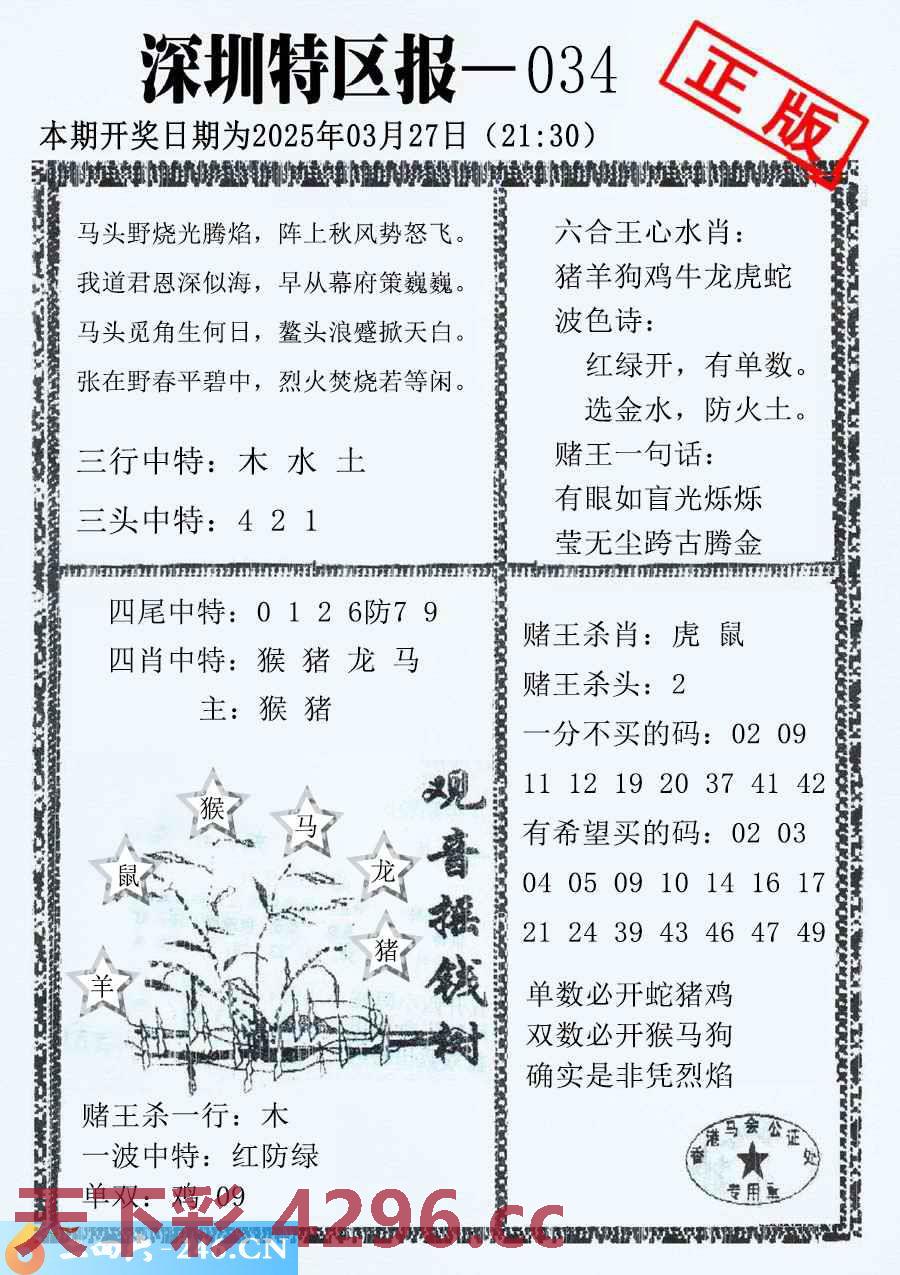 深圳特区报—034
正版
本期开奖日期为2025年03月27日（21:30）
马头野烧光腾焰，阵上秋风势怒飞。
我道君恩深似海，早从幕府策巍巍。
马头觅角生何日，鳌头浪蹙掀天白。
张在野春平碧中，烈火焚烧若等闲。
三行中特：木 水 土
三头中特：4 2 1
六合王心水肖：
猪羊狗鸡牛龙虎蛇
波色诗：
红绿开，有单数。
选金水，防火土。
赌王一句话：
有眼如盲光烁烁
莹无尘跨古腾金
四尾中特：0 1 2 6防7 9
四肖中特：猴 猪 龙 马
主：猴 猪
猴
马
鼠
龙
猪
羊
观音摇钱树
赌王杀一行：木
一波中特：红防绿
单双：鸡 09
赌王杀肖：虎 鼠
赌王杀头：2
一分不买的码：02 09
11 12 19 20 37 41 42
有希望买的码：02 03
04 05 09 10 14 16 17
21 24 39 43 46 47 49
单数必开蛇猪鸡
双数必开猴马狗
确实是非凭烈焰
香港马会公证处
专用章
天下彩 4296.cc
246.CN